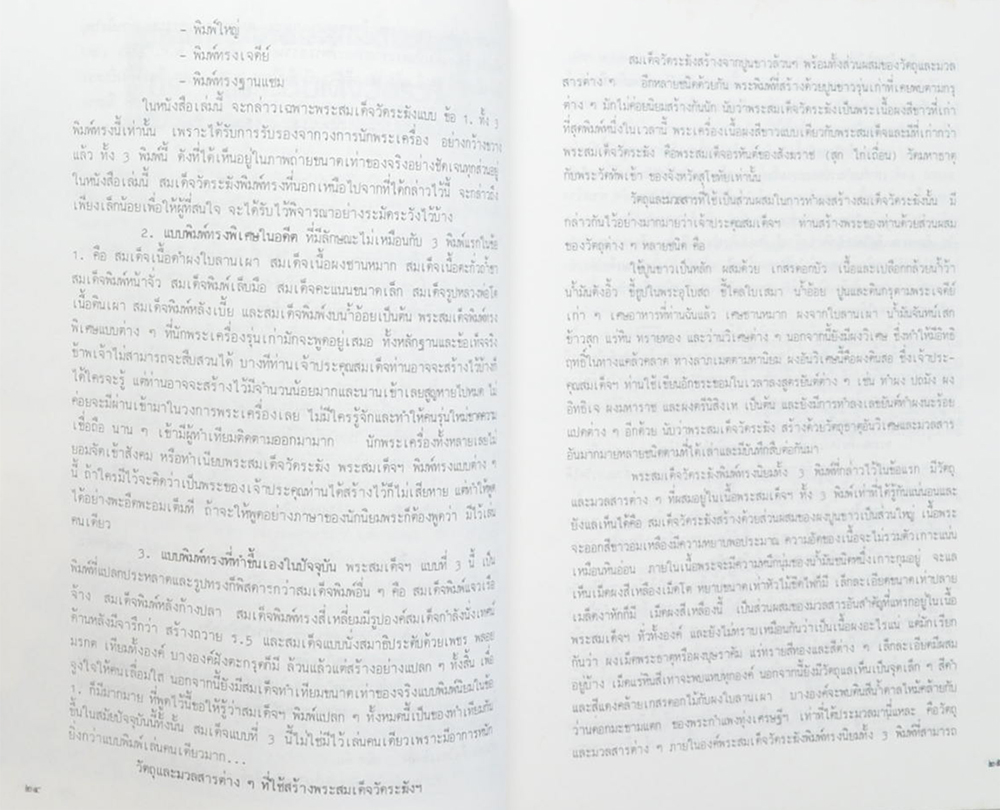 - พิมพ์ใหญ่
- พิมพ์ทรงเจดีย์
- พิมพ์ทรงฐานแซม
ในหนังสือเล่มนี้ จะกล่าวเฉพาะพระสมเด็จวัดระฆังแบบ ข้อ 1. ทั้ง 3
พิมพ์ทรงนี้เท่านั้น เพราะได้รับการรับรองจากวงการนักพระเครื่อง อย่างกว้างขวาง
แล้ว ทั้ง 3 พิมพ์นี้ ดังที่ได้เห็นอยู่ในภาพถ่ายขนาดเท่าของจริงอย่างชัดเจนทุกส่วนอยู่
ในหนังสือเล่มนี้ สมเด็จวัดระฆังพิมพ์ทรงที่นอกเหนือไปจากที่ได้กล่าวไว้นี้ จะกล่าวถึง
เพียงเล็กน้อยเพื่อให้ผู้ที่สนใจ จะได้รับไว้พิจารณาอย่างระมัดระวังไว้บ้าง
2. แบบพิมพ์ทรงพิเศษในอดีต ที่มีลักษณะไม่เหมือนกับ 3 พิมพ์แรกในข้อ
1. คือ สมเด็จเนื้อดำผงใบลานเผา สมเด็จเนื้อผงชานหมาก สมเด็จเนื้อตะกั่วถ้ำชา
สมเด็จพิมพ์หน้าจั่ว สมเด็จพิมพ์เล็บมือ สมเด็จคะแนนขนาดเล็ก สมเด็จรูปหลวงพ่อโต
เนื้อดินเผา สมเด็จพิมพ์หลังเบี้ย และสมเด็จพิมพ์งบน้ำอ้อยเป็นต้น พระสมเด็จพิมพ์ทรง
พิเศษแบบต่าง ๆ ที่นักพระเครื่องรุ่นเก่ามักจะพูดอยู่เสมอ ทั้งหลักฐานและข้อเท็จจริง
ข้าพเจ้าไม่สามารถจะสืบสวนได้ บางทีท่านเจ้าประคุณสมเด็จท่านอาจจะสร้างไว้บ้างก็
ได้ใครจะรู้ แต่ท่านอาจจะสร้างไว้มีจำนวนน้อยมากและนานเข้าเลยสูญหายไปหมด ไม่
ค่อยจะมีผ่านเข้ามาในวงการพระเครื่องเลย ไม่มีใครรู้จักและทำให้คนรุ่นใหม่ขาดความ
เชื่อถือ นาน ๆ เข้ามีผู้ทำเทียมติดตามออกมามาก นักพระเครื่องทั้งหลายเลยไม่
ยอมจัดเข้าสังคม หรือทำเนียบพระสมเด็จวัดระฆัง พระสมเด็จฯ พิมพ์ทรงแบบต่าง ๆ
นี้ ถ้าใครมีไว้จะคิดว่าเป็นพระของเจ้าประคุณท่านได้สร้างไว้ก็ไม่เสียหาย แต่ทำให้พูด
ได้อย่างพะอืดพะอมเต็มที ถ้าจะให้พูดอย่างภาษาของนักนิยมพระก็ต้องพูดว่า มีไว้เล่น
คนเดียว
3. แบบพิมพ์ทรงที่ทำขึ้นเองในปัจจุบัน พระสมเด็จฯ แบบที่ 3 นี้ เป็น
พิมพ์ที่แปลกประหลาดและรูปทรงก็พิสดารกว่าสมเด็จพิมพ์อื่น ๆ คือ สมเด็จพิมพ์แจวเรือ
จ้าง สมเด็จพิมพ์หลังก้างปลา สมเด็จพิมพ์ทรงสี่เหลี่ยมมีรูปองค์สมเด็จกำลังนั่งเทศน์
ด้านหลังมีจารึกว่า สร้างถวาย ร.5 และสมเด็จแบบนั่งสมาธิประดับด้วยเพชร พลอย
มรกต เทียมทั้งองค์ บางองค์ฝังตะกรุดก็มี ล้วนแล้วแต่สร้างอย่างแปลก ๆ ทั้งสิ้น เพื่อ
จูงใจให้คนเลื่อมใส นอกจากนี้ยังมีสมเด็จทำเทียมขนาดเท่าของจริงแบบพิมพ์นิยมในข้อ
1. ก็มีมากมาย ที่พูดไว้นี้ขอให้รู้ว่าสมเด็จฯ พิมพ์แปลก ๆ ทั้งหมดนี้เป็นของทำเทียมกัน
ขึ้นในสมัยปัจจุบันนี้ทั้งนั้น สมเด็จแบบที่ 3 นี้ไม่ใช่มีไว้เล่นคนเดียวเพราะมีอาการหนัก
ยิ่งกว่าแบบพิมพ์เล่นคนเดียวมาก...
วัตถุและมวลสารต่าง ๆ ที่ใช้สร้างพระสมเด็จวัดระฆังฯ
๒๔
สมเด็จวัดระฆังสร้างจากปูนขาวล้วนๆ พร้อมทั้งส่วนผสมของวัตถุและมวล
สารต่าง ๆ อีกหลายชนิดด้วยกัน พระพิมพ์ที่สร้างด้วยปูนขาวรุ่นเก่าที่เคยพบตามกรุ
ต่าง ๆ มักไม่ค่อยนิยมสร้างกันนัก นับว่าพระสมเด็จวัดระฆังเป็นพระเนื้อผงสีขาวที่เก่า
ที่สุดพิมพ์หนึ่งในเวลานี้ พระเครื่องเนื้อผงสีขาวแบบเดียวกับพระสมเด็จและมีที่เก่ากว่า
พระสมเด็จวัดระฆัง คือพระสมเด็จอรหันต์ของสังฆราช (สุก ไก่เถื่อน) วัดมหาธาตุ
กับพระวัดทัพเข้า ของจังหวัดสุโขทัยเท่านั้น
วัตถุและมวลสารที่ใช้เป็นส่วนผสมในการทำผงสร้างสมเด็จวัดระฆังนั้น มี
กล่าวกันไว้อย่างมากมายว่าเจ้าประคุณสมเด็จฯ ท่านสร้างพระของท่านด้วยส่วนผสม
ของวัตถุต่าง ๆ หลายชนิด คือ
ใช้ปูนขาวเป็นหลัก ผสมด้วย เกสรดอกบัว เนื้อและเปลือกกล้วยน้ำว้า
น้ำมันตังอิ๊ว ขี้ธูปในพระอุโบสถ ขี้ไคลใบเสมา น้ำอ้อย ปูนและดินกรุตามพระเจดีย์
เก่า ๆ เศษอาหารที่ท่านฉันแล้ว เศษชานหมาก ผงจากใบลานเผา น้ำมันจันทน์เสก
ข้าวสุก แร่หิน ทรายทอง และว่านวิเศษต่าง ๆ นอกจากนี้ยังมีผงวิเศษ ซึ่งทำให้มีอิทธิ
ฤทธิ์ในทางแคล้วคลาด ทางลาภเมตตามหานิยม ผงอันวิเศษนี้คือผงดินสอ ซึ่งเจ้าประ-
คุณสมเด็จฯ ท่านใช้เขียนอักขระขอมในเวลาลงสูตรยันต์ต่าง ๆ เช่น ทำผง ปถมัง ผง
อิทธิเจ ผงมหาราช และผงตรีนิสิงเห เป็นต้น และยังมีการทำลงเลขยันต์ทำผงนะร้อย
แปดต่าง ๆ อีกด้วย นับว่าพระสมเด็จวัดระฆัง สร้างด้วยวัตถุธาตุอันวิเศษและมวลสาร
อันมากมายหลายชนิดตามที่ได้เล่าและมีบันทึกสืบต่อกันมา
พระสมเด็จวัดระฆังพิมพ์ทรงนิยมทั้ง 3 พิมพ์ที่กล่าวไว้ในข้อแรก มีวัตถุ
และมวลสารต่าง ๆ ที่ผสมอยู่ในเนื้อพระสมเด็จฯ ทั้ง 3 พิมพ์เท่าที่ได้รู้กันแน่นอนและ
ยังแลเห็นได้คือ สมเด็จวัดระฆังสร้างด้วยส่วนผสมของผงปูนขาวเป็นส่วนใหญ่ เนื้อพระ
จะออกสีขาวอมเหลืองมีความหยาบพอประมาณ ความอัดของเนื้อจะไม่รวมตัวเกาะแน่น
เหมือนหินอ่อน ภายในเนื้อพระจะมีความหนึกนุ่มของน้ำมันชนิดหนึ่งเกาะกุมอยู่ จะแล
เห็นเม็ดผงสีเหลืองเม็ดโต หยาบขนาดเท่าหัวไม้ขีดไฟก็มี เล็กละเอียดขนาดเท่าปลาย
เมล็ดงาทักก็มี เม็ดผงสีเหลืองนี้ เป็นส่วนผสมของมวลสารอันสำคัญที่แทรกอยู่ในเนื้อ
พระสมเด็จฯ ทั่วทั้งองค์ และยังไม่ทราบเหมือนกันว่าเป็นเนื้อผงอะไรแน่ แต่มักเรียก
กันว่า ผงเม็ดพระธาตุหรือผงบุษราคัม แร่ทรายสีทองและสีต่าง ๆ เล็กละเอียดมีผสม
อยู่บ้าง เม็ดแร่หินสีเทาจะพบแทบทุกองค์ นอกจากนี้ยังมีวัตถุแลเห็นเป็นจุดเล็ก ๆ สีดำ
และสีแดงคล้ายเกสรดอกไม้กับผงใบลานเผา บางองค์จะพบดินสีน้ำตาลไหม้คล้ายกับ
ว่านดอกมะขามแดก ของพระกำแพงทุ่งเศรษฐีฯ เท่าที่ได้ประมวลมานี่แหละ คือวัตถุ
และมวลสารต่าง ๆ ภายในองค์พระสมเด็จวัดระฆังพิมพ์ทรงนิยมทั้ง 3 พิมพ์ที่สามารถ
๒๕